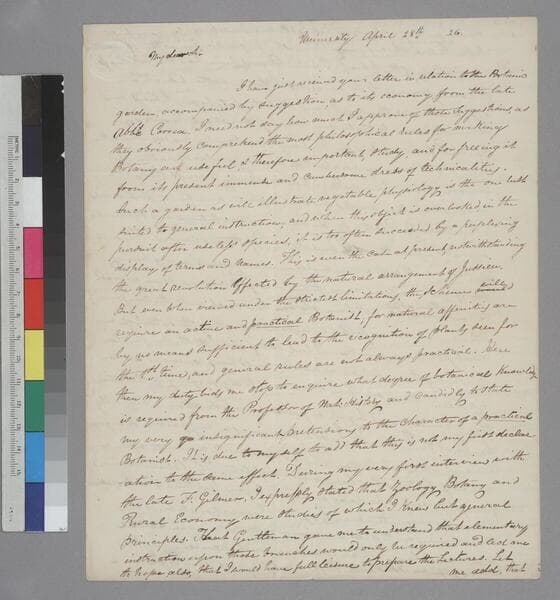 University April 28th 26.
My dear Sir.
I have just received your letter in relation to the Botanic
garden, accompanied by suggestions as to its economy from the late
Abbé Correa. I need not say how much I approve of those suggestions, as
they obviously comprehend the most philosophical rules for making
Botany and useful, & therefore important, study, and for freeing it
from its present immense and cumbersome dress of technicalities.
Such a garden as will illustrate vegetable physiology is the one best
suited to general instruction, and when this object is overlooked in the
pursuit after useless species, it is too often succeeded by a perplexing
display of terms and names. This is even the case at present, notwithstanding
the great revolution effected by the natural arrangement of Jussieu.
But even when viewed under the strictest limitations, the scheme
require an active and practical Botanist, for natural affinities are
by no means sufficient to lead to the recognition of plants seen for
the 1st time, and general rules are not always practical. Here
then my duty bids me stop to enquire what degree of botanical knowledge
is required from the Professor of Nat: History and candidly to state
my very insignificant pretensions to the character of a practical
Botanist. It is due to myself to add that this is not my first declar
ation to the same effect. During my very first interview with
the late F. Gilmer, I expressly stated that Zoology, Botany and
Rural Economy were studies of which I knew but general
principles. That Gentleman gave me to understand that elementary
instruction upon those branches would only be required and led me
to hope also, that I would have full leisure to prepare the Lectures. Let
me add, that